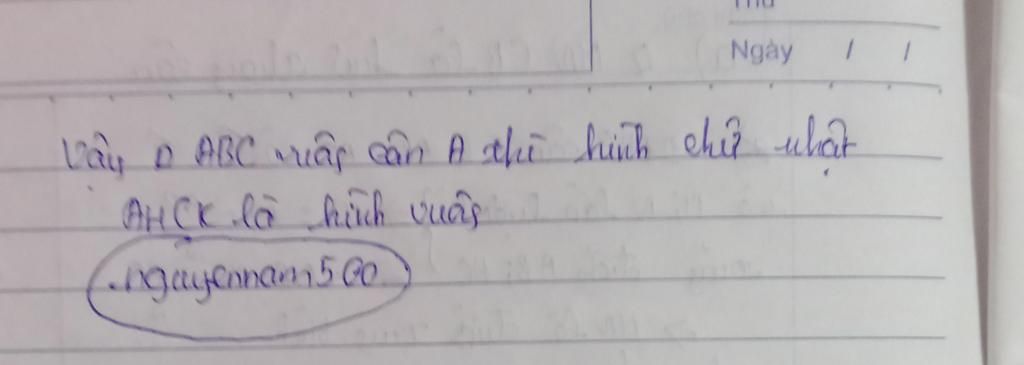 Thứ
Ngày / /
Vậy Δ ABC vuông cân A thì hình chữ nhật
AHCK là hình vuông
.nguyennam500